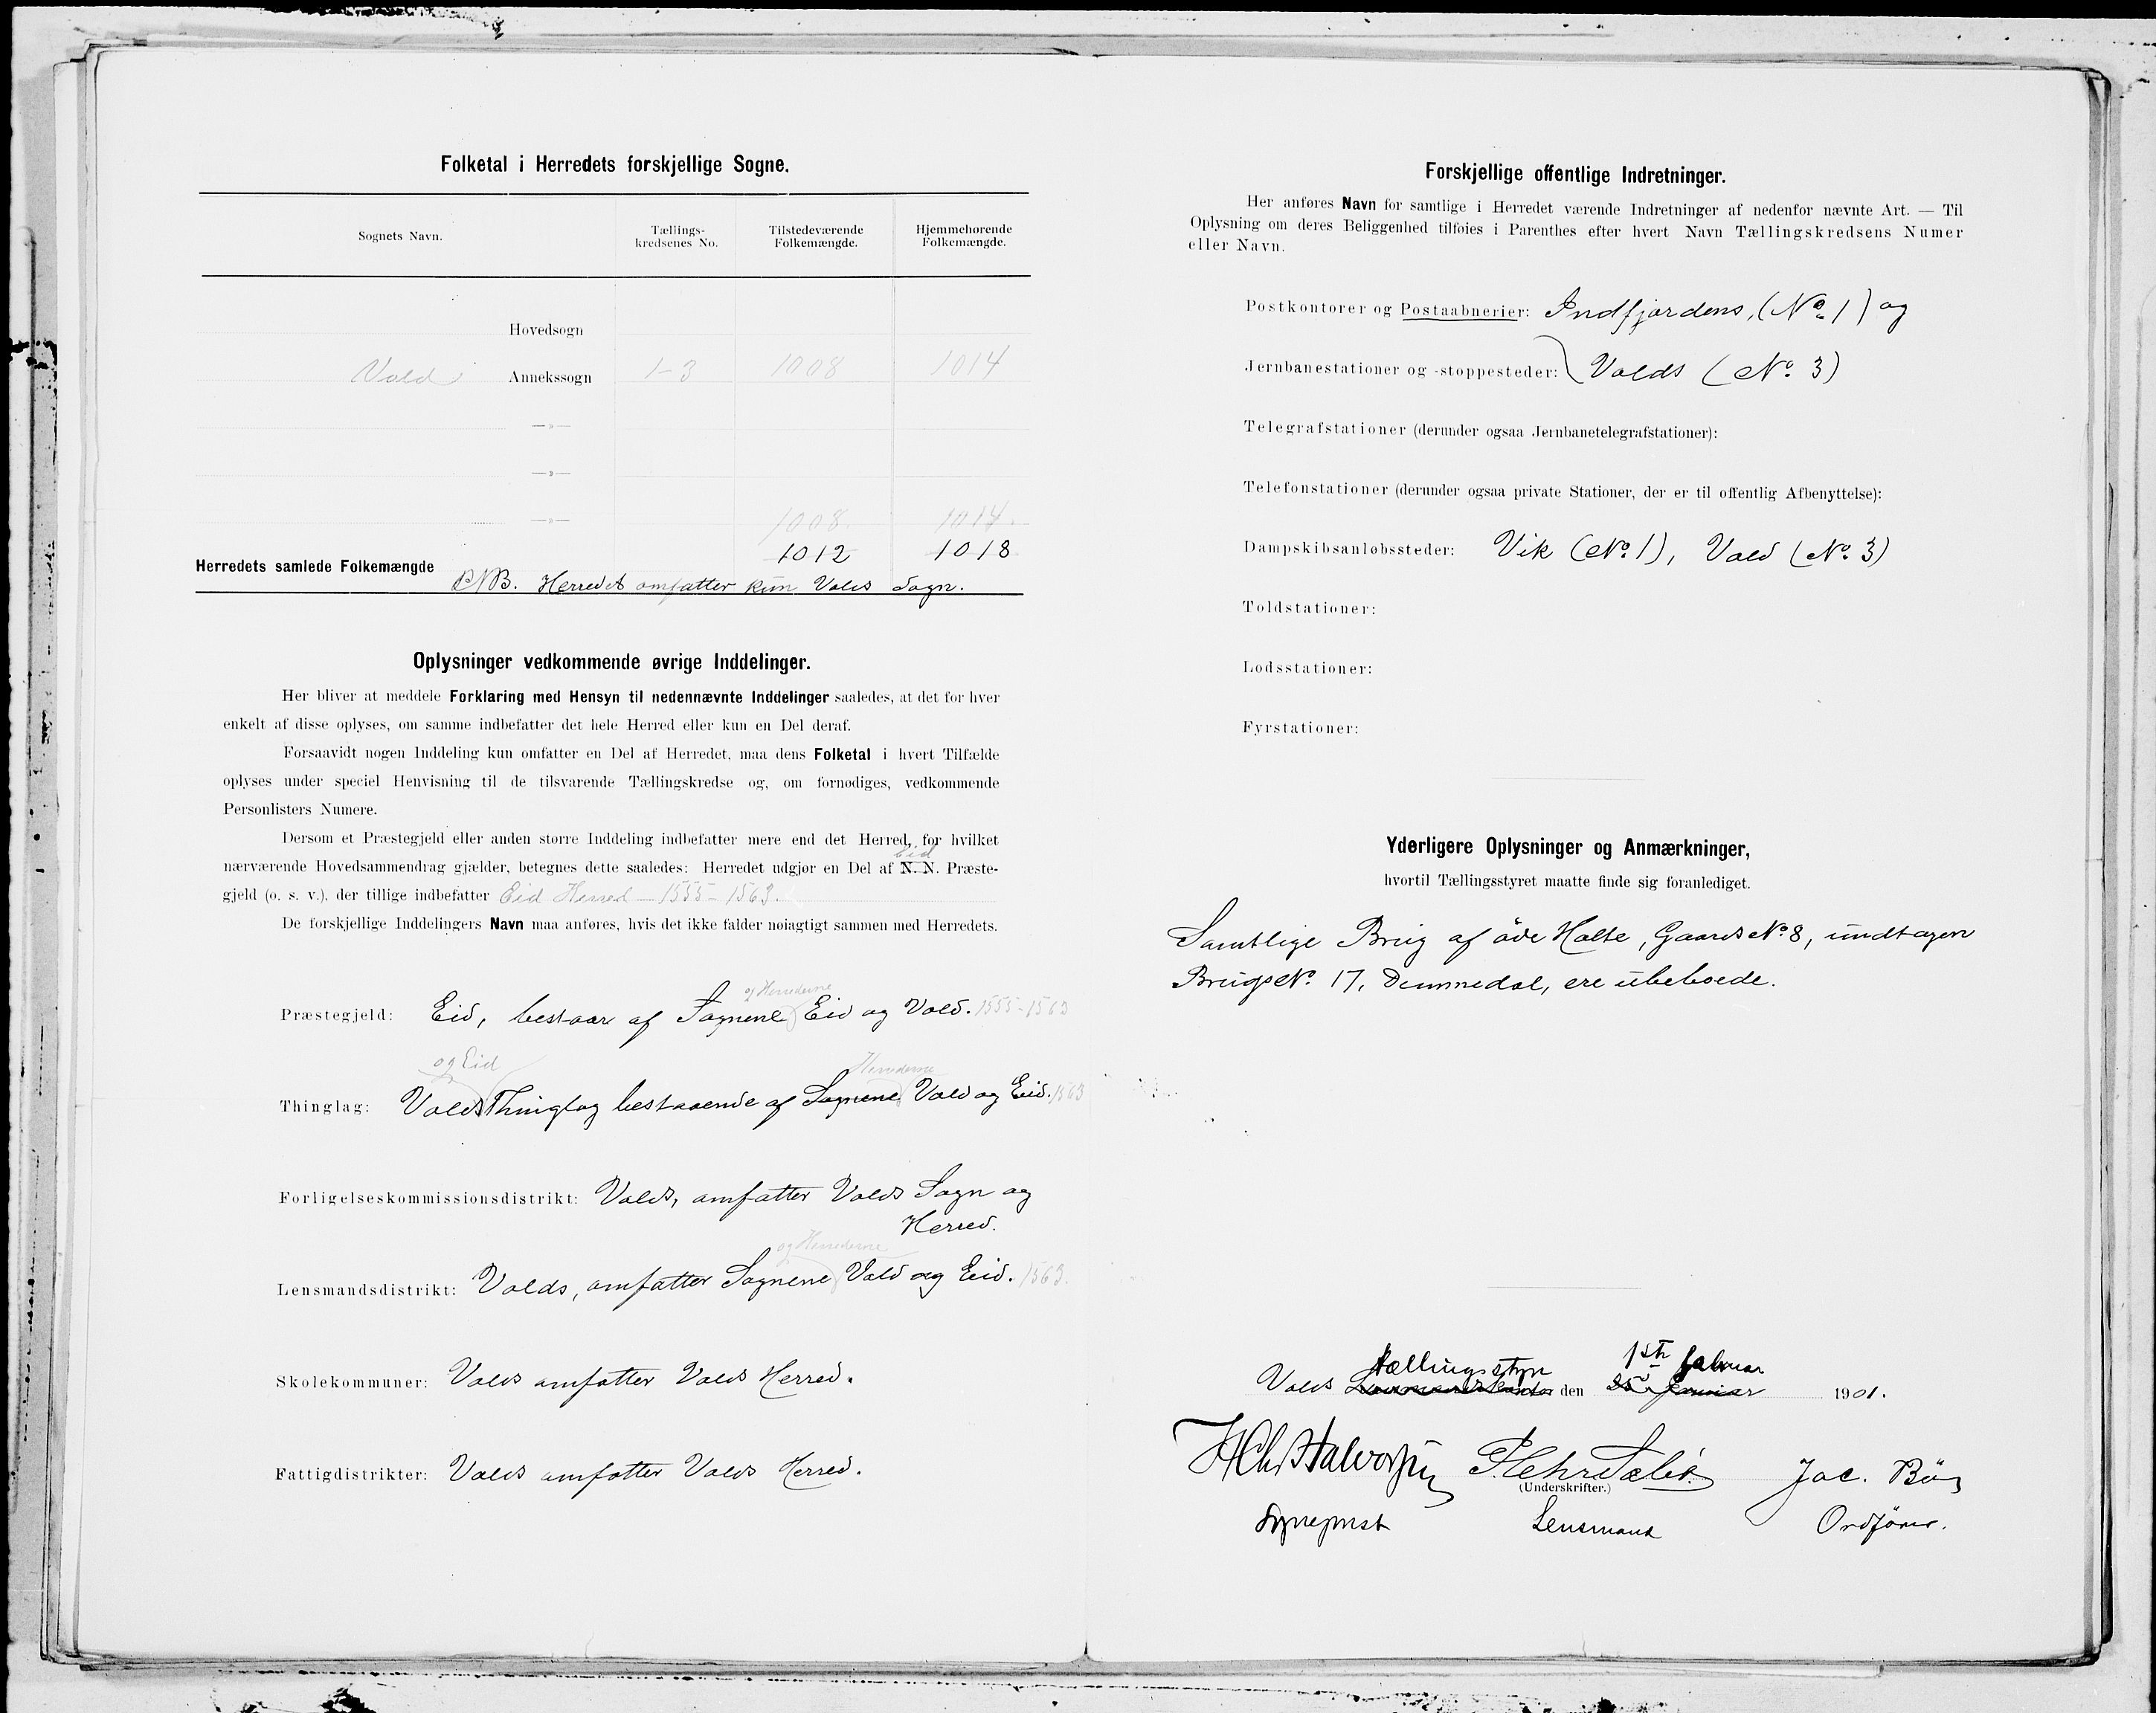 Folketal i Herredets forskjellige Sogne.
Sognets Navn. Tællings-kredsenes No. Tilstedeværende Folkemængde. Hjemmehørende Folkemængde.
Hovedsogn
Vold Annekssogn 1-3 1008 1014
—»—
—»—
—»— 1008. 1014.
Herredets samlede Folkemængde 1012 1018
NB. Herredet omfatter kun Volds Sogn.
Oplysninger vedkommende øvrige Inddelinger.
Her bliver at meddele Forklaring med Hensyn til nedennævnte Inddelinger saaledes, at det for hver
enkelt af disse oplyses, om samme indbefatter det hele Herred eller kun en Del deraf.
Forsaavidt nogen Inddeling kun omfatter en Del af Herredet, maa dens Folketal i hvert Tilfælde
oplyses under speciel Henvisning til de tilsvarende Tællingskredse og, om fornødiges, vedkommende
Personlisters Numere.
Dersom et Præstegjeld eller anden større Inddeling indbefatter mere end det Herred, for hvilket
Eid
nærværende Hovedsammendrag gjælder, betegnes dette saaledes: Herredet udgjør en Del af N. N. Præste-
gjeld (o. s. v.), der tillige indbefatter Eid Herred — 1555 - 1563.
De forskjellige Inddelingers Navn maa anføres, hvis det ikke falder nøiagtigt sammen med Herredets.
og Herrederne
Præstegjeld: Eid, bestaar af Sognene Eid og Vold. 1555-1563
og Eid Herrederne
Thinglag: Volds Thinglag bestaaende af Sognene Vold og Eid. 1563
Forligelseskommissionsdistrikt: Volds, omfatter Volds Sogn og
Herred.
og Herrederne
Lensmandsdistrikt: Volds, omfatter Sognene Vold og Eid. 1563.
Skolekommuner: Volds omfatter Volds Herred.
Fattigdistrikter: Volds omfatter Volds Herred.
Forskjellige offentlige Indretninger.
Her anføres Navn for samtlige i Herredet værende Indretninger af nedenfor nævnte Art. — Til
Oplysning om deres Beliggenhed tilføies i Parenthes efter hvert Navn Tællingskredsens Numer
eller Navn.
Postkontorer og Postaabnerier: Indfjordens, (No 1) og
Jernbanestationer og -stoppesteder: Volds (No. 3)
Telegrafstationer (derunder ogsaa Jernbanetelegrafstationer):
Telefonstationer (derunder ogsaa private Stationer, der er til offentlig Afbenyttelse):
Dampskibsanløbssteder: Vik (No 1), Vold (No. 3)
Toldstationer:
Lodsstationer:
Fyrstationer:
Yderligere Oplysninger og Anmærkninger,
hvortil Tællingsstyret maatte finde sig foranlediget.
Samtlige Brug af øde Holte, Gaards No. 8, undtagen
Brugs No. 17, Demmedal, ere ubeboede.
Tællingsstyre 1ste februar
Volds Lensmandskontor den 25. Januar 1901.
H Chr Halvorsen Jac. Bö
(Underskrifter.)
Sogneprest Lensmand Ordfører.